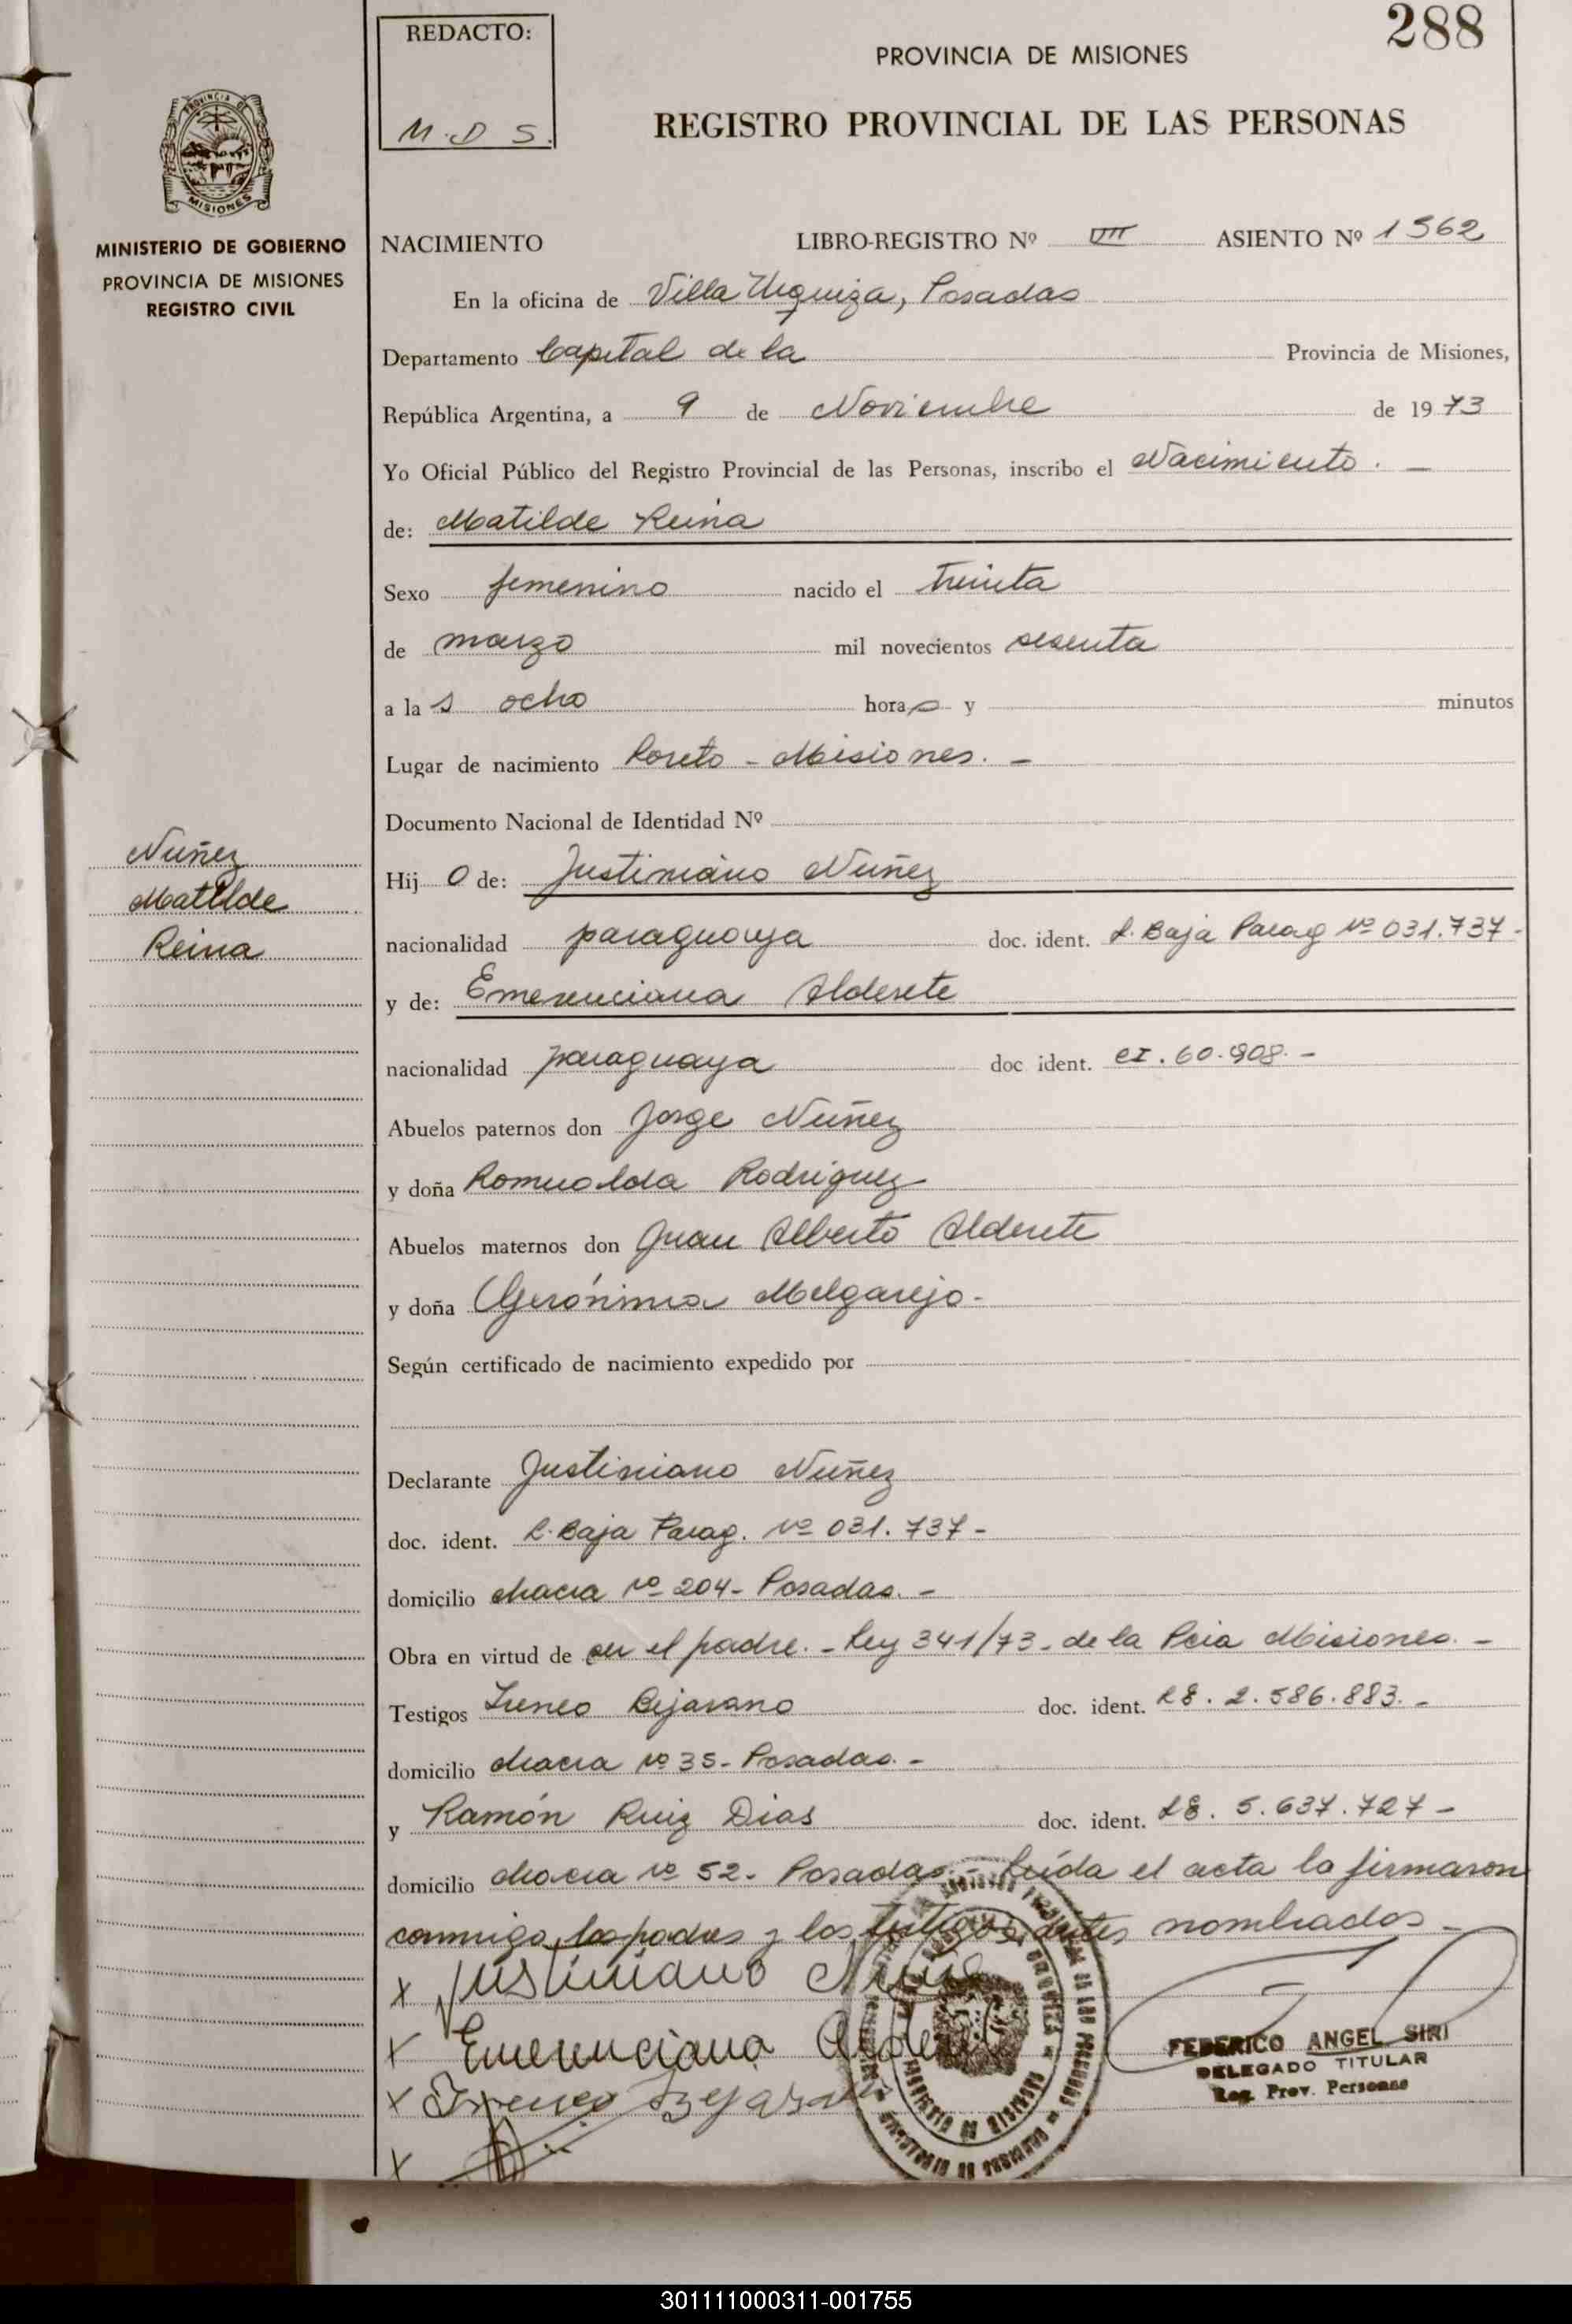 288
REDACTO:
M. D S.
PROVINCIA DE MISIONES
REGISTRO PROVINCIAL DE LAS PERSONAS
PROVINCIA DE
MISIONES
MINISTERIO DE GOBIERNO
PROVINCIA DE MISIONES
REGISTRO CIVIL
NACIMIENTO LIBRO-REGISTRO Nº VIII ASIENTO Nº 1562
En la oficina de Villa Urquiza, Posadas
Departamento Capital de la Provincia de Misiones,
República Argentina, a 9 de Noviembre de 1973
Yo Oficial Público del Registro Provincial de las Personas, inscribo el Nacimiento. —
de: Matilde Reina
Sexo femenino nacido el treinta
de marzo mil novecientos sesenta
a las ocho horas y minutos
Lugar de nacimiento Loreto - Misiones. —
Documento Nacional de Identidad Nº
Nuñez
Matilde
Reina
Hij o de: Justiniano Nuñez
nacionalidad paraguaya doc. ident. L. Baja Parag Nº 031.737-
y de: Emerenciana Alderete
nacionalidad paraguaya doc ident. CI. 60.908. -
Abuelos paternos don Jorge Nuñez
y doña Romualda Rodriguez
Abuelos maternos don Juan Alberto Alderete
y doña Gerónima Melgarejo-
Según certificado de nacimiento expedido por
Declarante Justiniano Nuñez
doc. ident. L. Baja Parag. Nº 031.737-
domicilio chacra Nº 204- Posadas. -
Obra en virtud de ser el padre. - Ley 341/73- de la Pcia Misiones. -
Testigos Ireneo Bejarano doc. ident. LE. 2.586.883. -
domicilio chacra Nº 35- Posadas. -
y Ramón Ruiz Dias doc. ident. LE. 5.637.727-
domicilio chacra Nº 52- Posadas. - Leída el acta la firmaron
conmigo, los padres y los testigos antes nombrados -
x Justiniano Nuñez
x Emerenciana
x Ireneo Bejarano
x
FEDERICO ANGEL SIRI
DELEGADO TITULAR
Reg. Prov. Personas
301111000311-001755